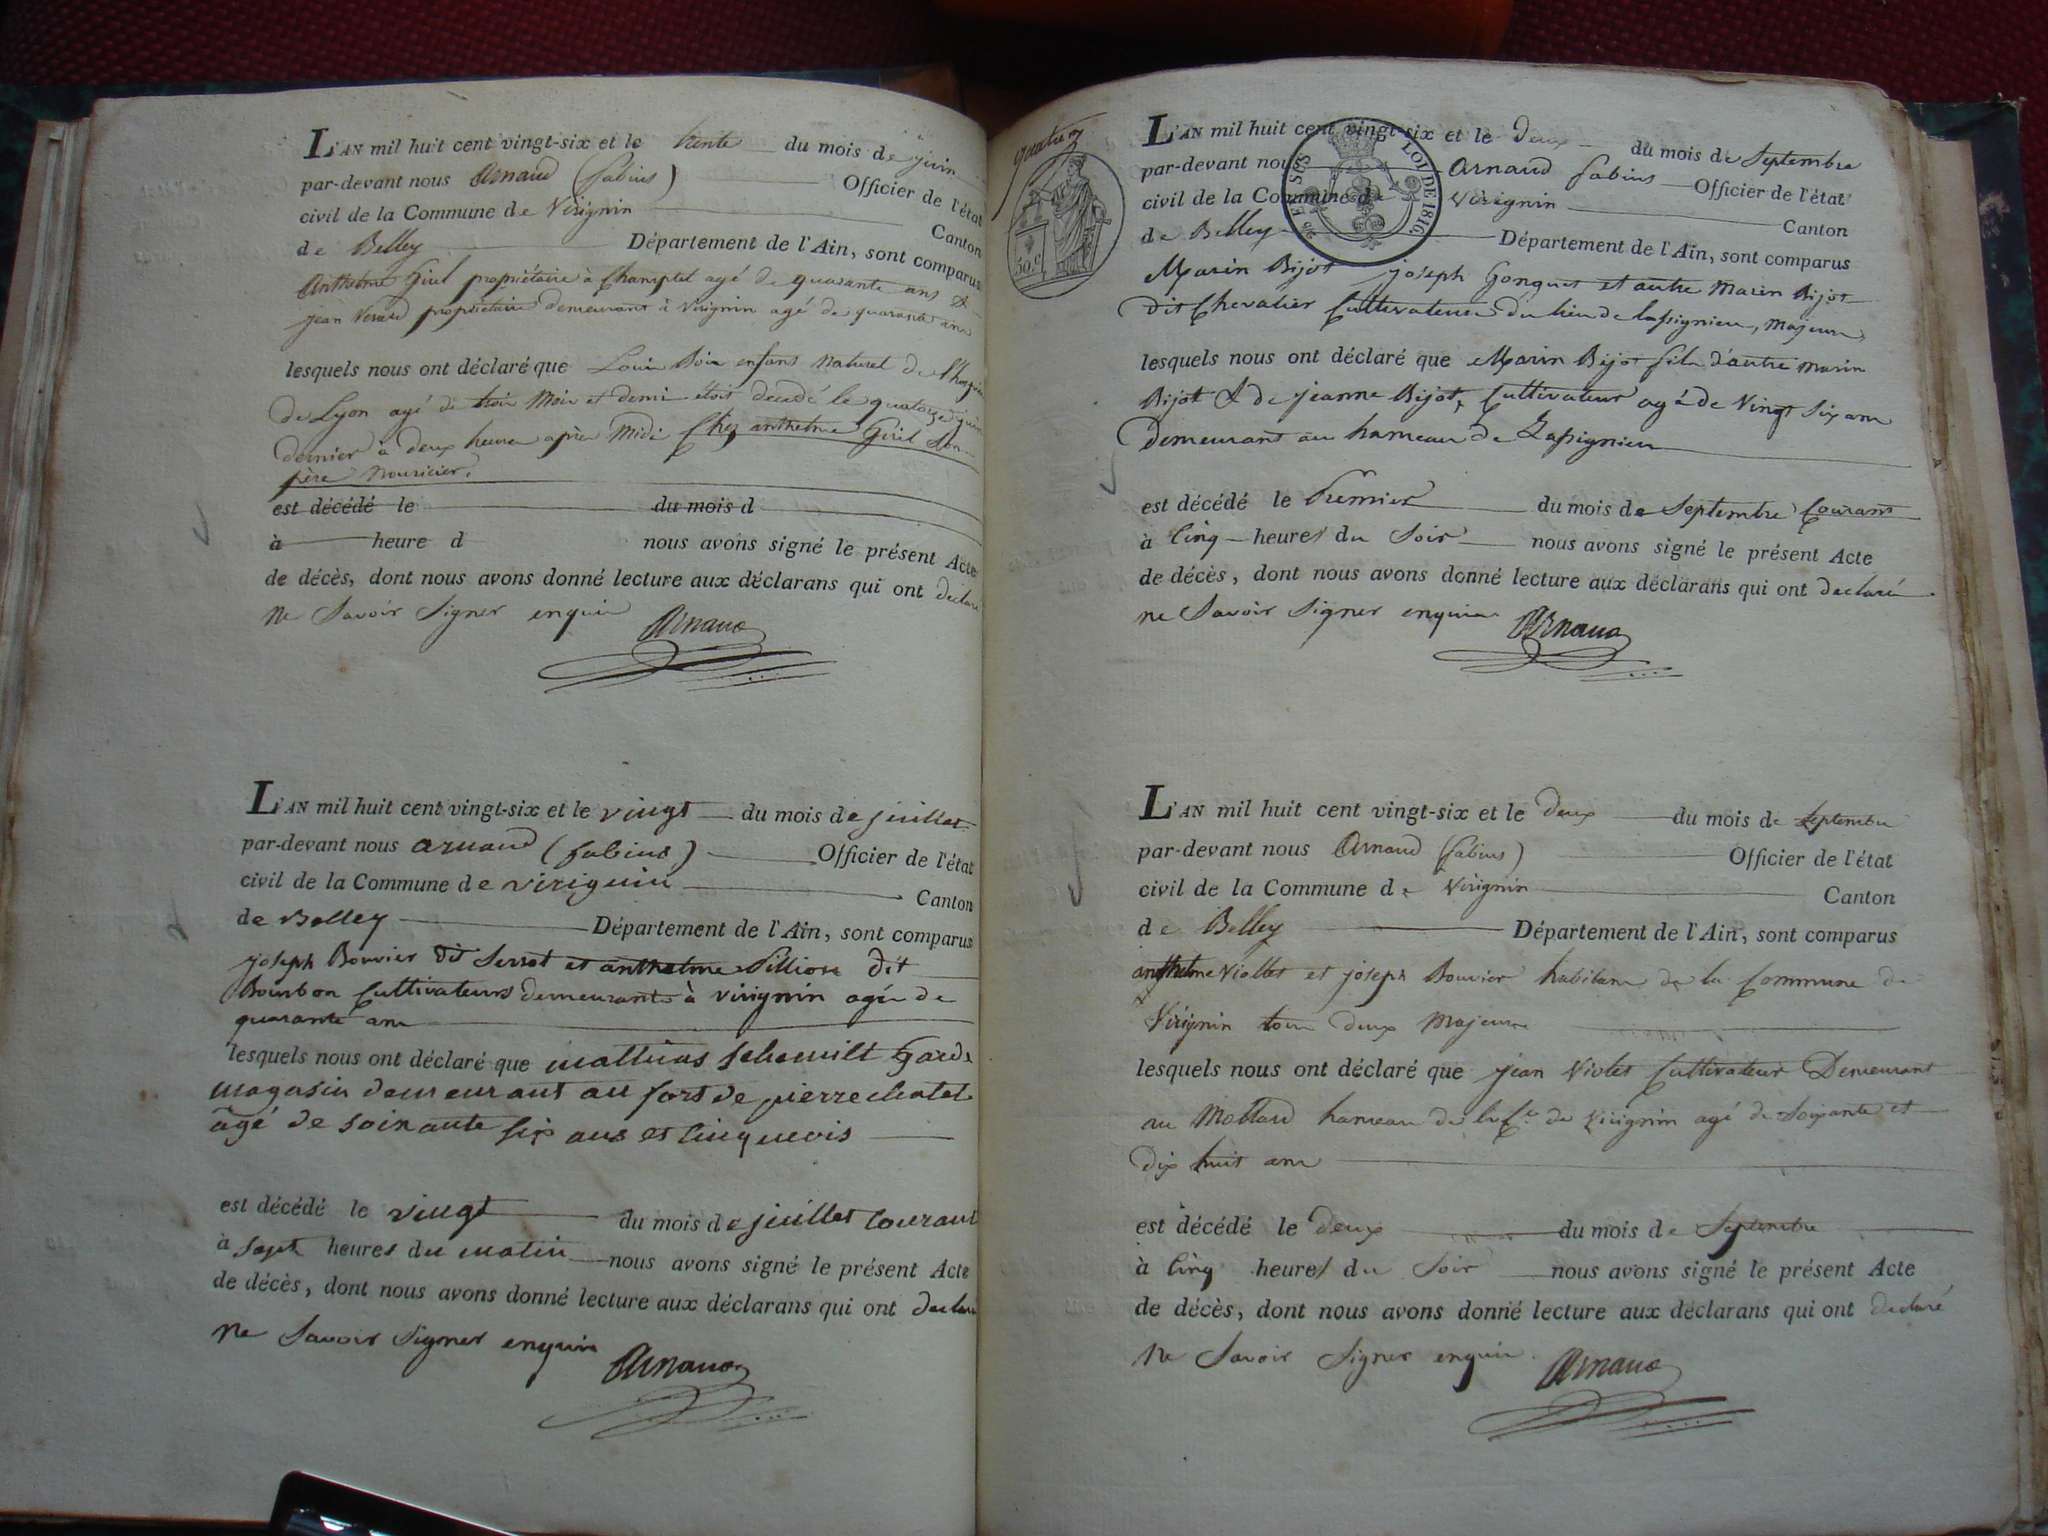 L'AN mil huit cent vingt-six et le trente du mois de juin
par-devant nous Arnaud (fabius) Officier de l'état
civil de la Commune de Virignin Canton
de Belley Département de l'Ain, sont comparus
Anthelme Giril propriétaire à Champtel agé de quarante ans &
jean propriétaire demeurant à Virignin agé de quarante ans
lesquels nous ont déclaré que Louis enfant naturel de
de Lyon agé de trois mois et demi étoit décédé le quatorze juin
dernier à deux heures après midi chez anthelme Giril son
père nouricier.
est décédé le du mois d
à heure d nous avons signé le présent Acte
de décès, dont nous avons donné lecture aux déclarans qui ont declaré
ne Savoir Signer enquis
Arnaud
L'AN mil huit cent vingt-six et le vingt du mois de juillet
par-devant nous arnaud (fabius) Officier de l'état
civil de la Commune de virignin Canton
de Belley Département de l'Ain, sont comparus
joseph Bouvier dit Serrot et anthelme Billion dit
Bourbon Cultivateurs demeurants à virignin agés de
quarante ans
lesquels nous ont déclaré que mathias Schemilt Garde
magasin demeurant au fort de pierrechatel
âgé de soixante six ans et cinq mois
est décédé le vingt du mois de juillet courant
à Sept heures du matin nous avons signé le présent Acte
de décès, dont nous avons donné lecture aux déclarans qui ont declaré
ne Savoir Signer enquis
Arnaud
50 c
LOI DE 1816
L'AN mil huit cent vingt-six et le deux du mois de Septembre
par-devant nous Arnaud fabius Officier de l'état
civil de la Commune de Virignin Canton
de Belley Département de l'Ain, sont comparus
Marin Bijot joseph Gonguet et autre Marin Bijot
dit Chevalier Cultivateurs du lieu de Lassignieu, Majeurs
lesquels nous ont déclaré que Marin Bijot fils d'autre marin
Bijot & de jeanne Bijot, Cultivateur agé de Vingt Six ans
demeurant au hameau de Lassignieu
est décédé le Premier du mois de Septembre Courant
à Cinq heures du Soir nous avons signé le présent Acte
de décès, dont nous avons donné lecture aux déclarans qui ont declaré
ne Savoir Signer enquis
Arnaud
L'AN mil huit cent vingt-six et le deux du mois de Septembre
par-devant nous Arnaud (fabius) Officier de l'état
civil de la Commune de Virignin Canton
de Belley Département de l'Ain, sont comparus
anthelme Viollet et joseph Bouvier habitans de la Commune de
Virignin tous deux Majeurs
lesquels nous ont déclaré que jean Violet Cultivateur Demeurant
au Mollard hameau de la Cne de Virignin agé de Soixante et
dix huit ans
est décédé le deux du mois de Septembre
à Cinq heures du Soir nous avons signé le présent Acte
de décès, dont nous avons donné lecture aux déclarans qui ont declaré
ne Savoir Signer enquis
Arnaud